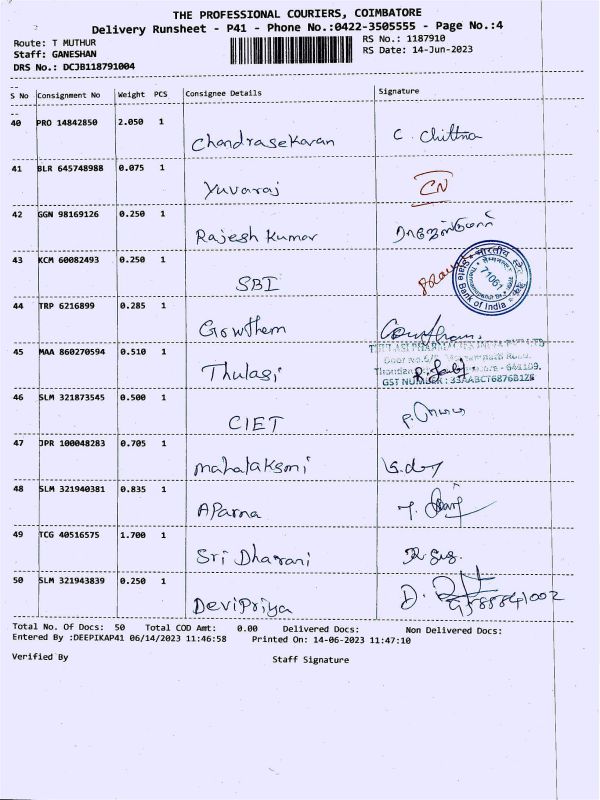 THE PROFESSIONAL COURIERS, COIMBATORE
Delivery Runsheet - P41 - Phone No.:0422-3505555 - Page No.:4
Route: T MUTHUR RS No.: 1187910
Staff: GANESHAN RS Date: 14-Jun-2023
DRS No.: DCJB118791004
S No Consignment No Weight PCS Consignee Details Signature
40 PRO 14842850 2.050 1
Chandrasekaran C. Chittra
41 BLR 645748988 0.075 1
Yuvaraj CN
42 GGN 98169126 0.250 1
Rajesh Kumar
43 KCM 60082493 0.250 1
SBI
71061
State Bank of India
44 TRP 6216899 0.285 1
Gowthem Gowtham.
45 MAA 860270594 0.510 1
Thulasi
GST NUMBER : 33AABCT6876B1Z6
46 SLM 321873545 0.500 1
CIET
47 JPR 100048283 0.705 1
mahalaksmi
48 SLM 321940381 0.835 1
Aparna
49 TCG 40516575 1.700 1
Sri Dharani
50 SLM 321943839 0.250 1
Devipriya D.
Total No. Of Docs: 50 Total COD Amt: 0.00 Delivered Docs: Non Delivered Docs:
Entered By :DEEPIKAP41 06/14/2023 11:46:58 Printed On: 14-06-2023 11:47:10
Verified By Staff Signature